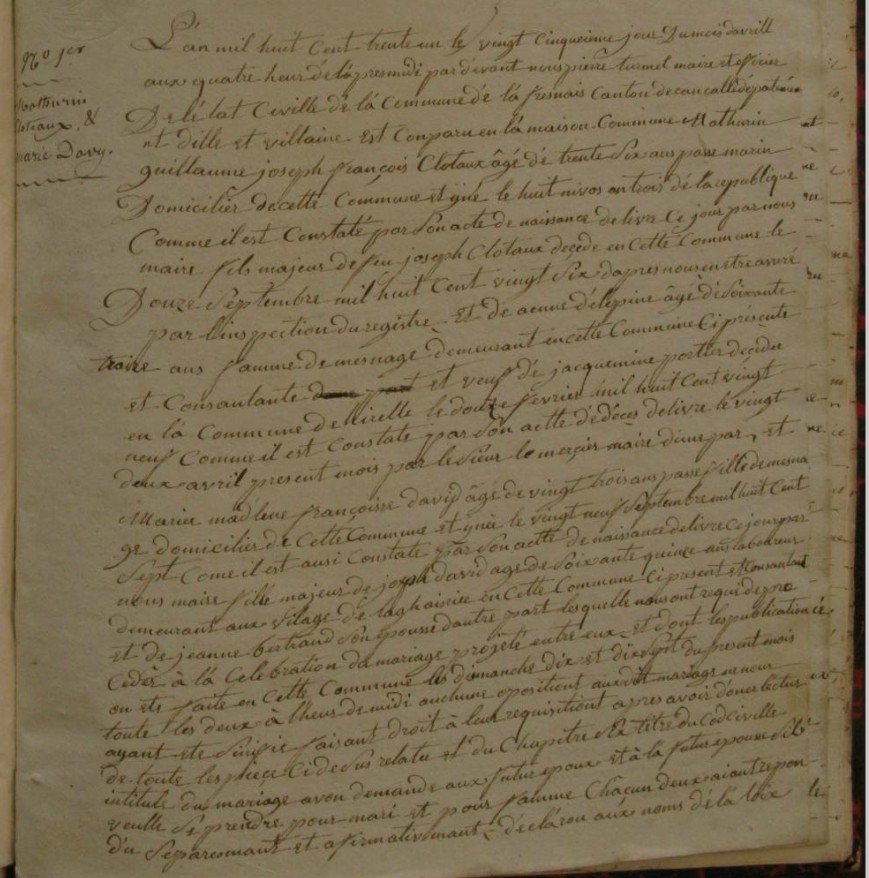 No 1er
Mathurin
Cloteaux, &
Marie Davy.
L'an mil huit Cent trente un le vingt Cinqueieme jour Du mois davrill
aux quatre heur de lapresmidi par devant nous pierre turmel maire et officier
De lé tat Civille de lá Commune dé la fresnais Canton de Cancalle dépatém
nt dille et villaine Est Conparu en lá maison Commune Mathurin
guillaume joseph françois Clotaux âgé dé trente Six ans passe marin
Domicilier de cette Commune et yné le huit nivos an trois de la republique
Comme il est Constaté par Son acte de naissance delivre Ce jour par nous
maire fils majeur de feu joseph Clotaux déçede en Cette Commune le
Douze Septembre mil huit Cent vingt Six dapres nous en etre assuré
par l'inspection du registre et de lépine âgé dé Soixante
traise ans famme de mesnage demeurant en cette Commune Ci présente
et Consantante et veuf dé jacquemine portier deçedee
en lá Commune de le douze fevrier mil huit Cent vingt
neuf Comme il est Constate par Son actte dédéces delivre le vingt
deux avril present mois par le Sieur lemerçier maire et
Marie madlene françoisse david âgé de vingt trois ans passe fille de mesna
ge domicilier de Cette Commune et ynée le vingt neuf Septembre mil huit Cent
Sept Come il est ausi Constate par Son actte de naissance delivre Ce jour par
nous maire fille majeur de joseph david age de Soixante quince ans laboureur
demeurant aux vilage dé en Cette Commune Ci present et Consantant
et de jeanne bertrand Son épousse dautre part lesquelle nous ont requi de pro
Ceder à lá Celebration du mariage projeté entre eux et dont les publication
on ete faite en Cette Commune les dimanche dix et dix Sept du present mois
toute les deux à lheur de midi auchune opositient audit mariage ne nous
ayant ete Sinifie faisant droit à leur requisitiont apres avoir doner lectur
de toute les pieçe Ci de Sus relate et du Chapitre Six titre du Cod Civille
intitule du mariage avon demande aux futur epoux et à la futur epouse Sil
veulle Se prendre pour mari et pour famme Châcun deux aiant repon
du Separesmant et afirmativemant declaron aux noms dé lá loix